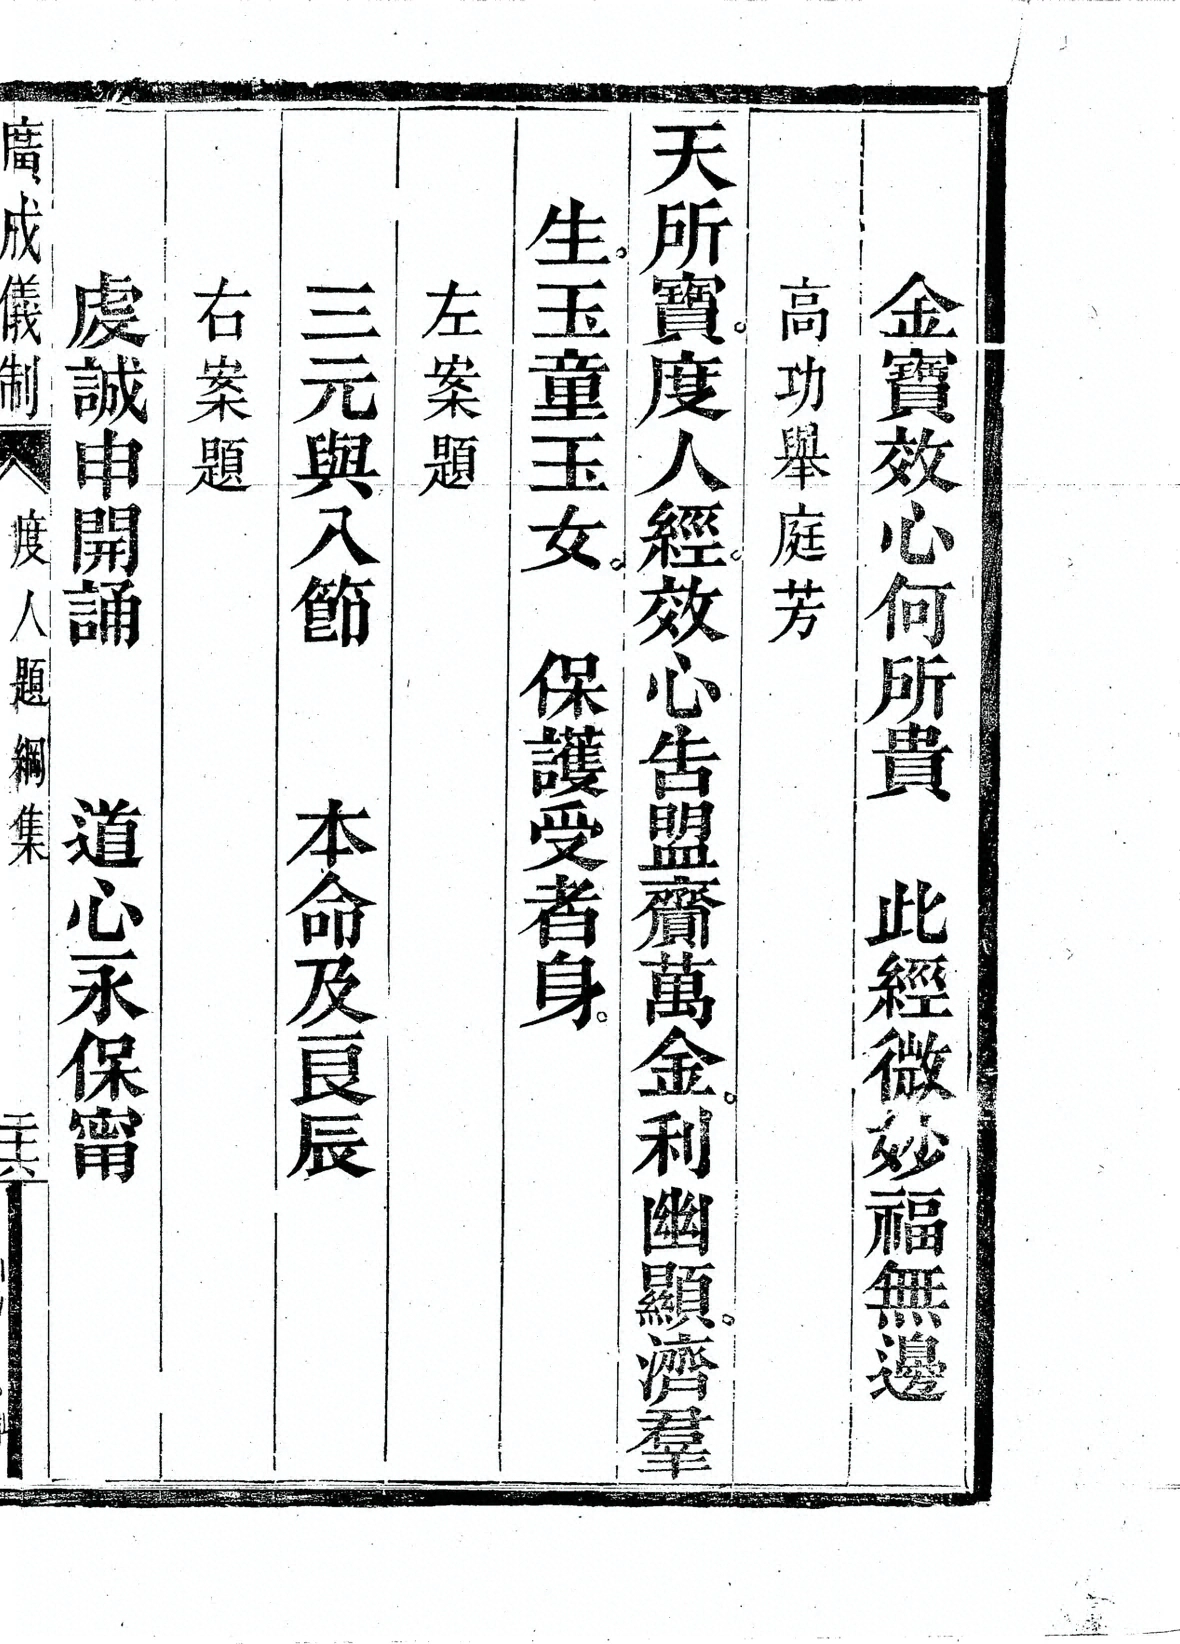 金寶效心何所貴　此經微妙福無邊
高功舉庭芳
天所寶。度人經。效心告盟齎萬金。利幽顯。濟羣
生。玉童玉女。保護受者身。
左案題
三元與八節　本命及良辰
右案題
虔誠申開誦　道心永保甯
廣成儀制　度人題綱集　二十六